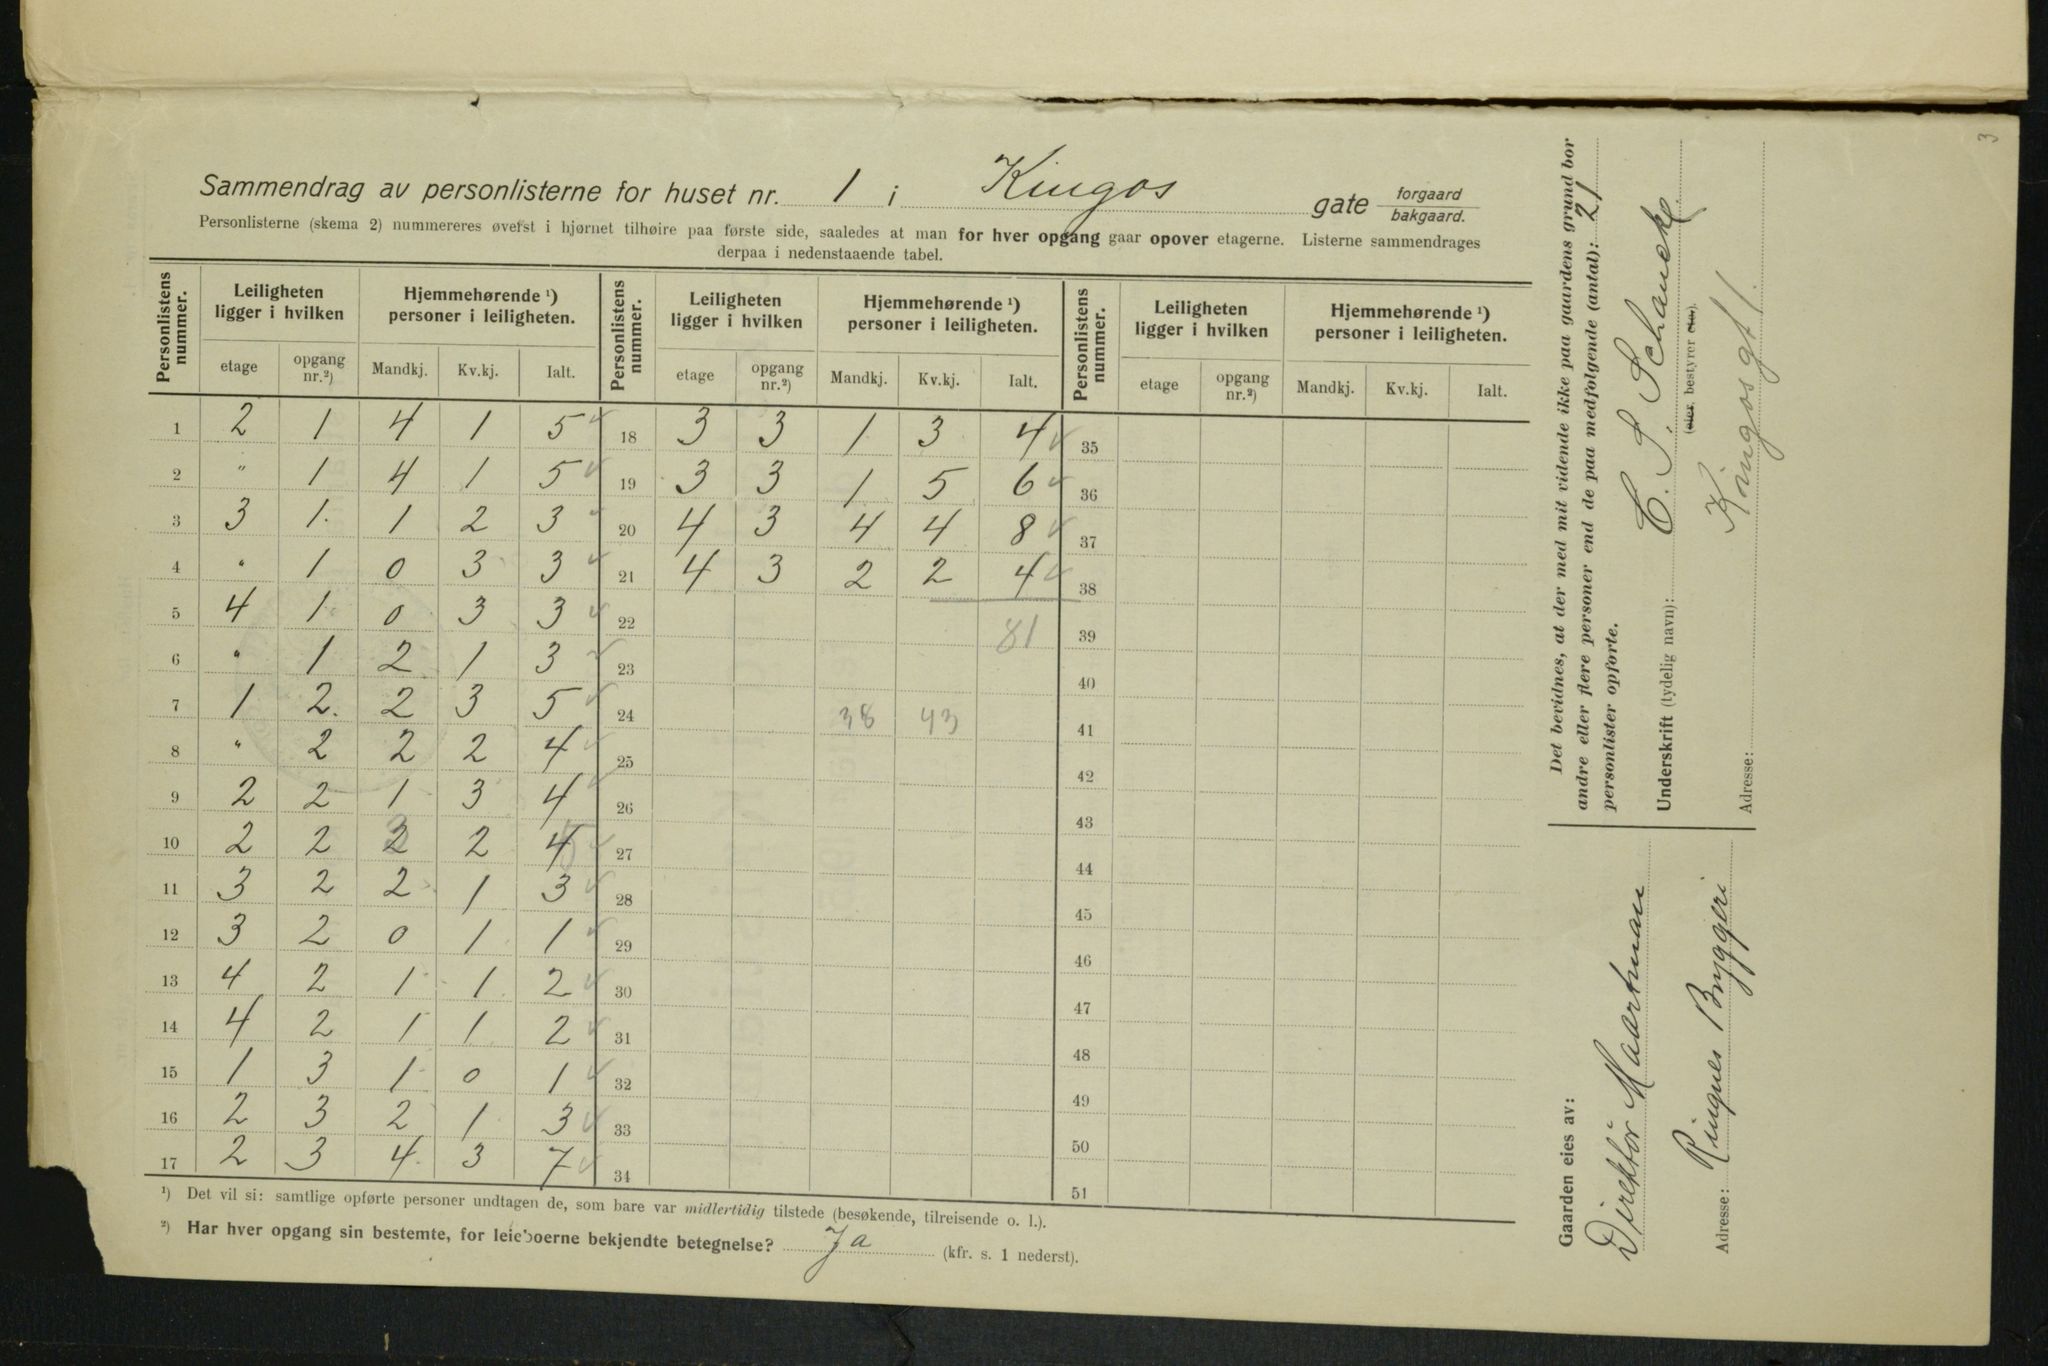 3
Sammendrag av personlisterne for huset nr. 1 i Kingos gate forgaard
bakgaard.
Personlisterne (skema 2) nummereres øverst i hjørnet tilhøire paa første side, saaledes at man for hver opgang gaar opover etagerne. Listerne sammendrages
derpaa i nedenstaaende tabel.
Personlistens nummer. Leiligheten ligger i hvilken Hjemmehørende ¹) personer i leiligheten. Personlistens nummer. Leiligheten ligger i hvilken Hjemmehørende ¹) personer i leiligheten. Personlistens nummer. Leiligheten ligger i hvilken Hjemmehørende ¹) personer i leiligheten.
etage opgang nr.²) Mandkj. Kv.kj. Ialt. etage opgang nr.²) Mandkj. Kv.kj. Ialt. etage opgang nr.²) Mandkj. Kv.kj. Ialt.
1 2 1 4 1 5 18 3 3 1 3 4 35
2 " 1 4 1 5 19 3 3 1 5 6 36
3 3 1 1 2 3 20 4 3 4 4 8 37
4 " 1 0 3 3 21 4 3 2 2 4 38
5 4 1 0 3 3 22 81 39
6 " 1 2 1 3 23 40
7 1 2 2 3 5 24 38 43 41
8 " 2 2 2 4 25 42
9 2 2 1 3 4 26 43
10 2 2 2 3 2 4 5 27 44
11 3 2 2 1 3 28 45
12 3 2 0 1 1 29 46
13 4 2 1 1 2 30 47
14 4 2 1 1 2 31 48
15 1 3 1 0 1 32 49
16 2 3 2 1 3 33 50
17 2 3 4 3 7 34 51
¹) Det vil si: samtlige opførte personer undtagen de, som bare var midlertidig tilstede (besøkende, tilreisende o. l.).
²) Har hver opgang sin bestemte, for leieboerne bekjendte betegnelse? Ja (kfr. s. 1 nederst).
Det bevidnes, at der med mit vidende ikke paa gaardens grund bor
andre eller flere personer end de paa medfølgende (antal): 21
personlister opførte.
Underskrift (tydelig navn): C. S. Schanckl
(eier, bestyrer etc).
Adresse: Kingosgt 1.
Gaarden eies av:
Direktör Maartman
Adresse: Ringnes Bryggeri